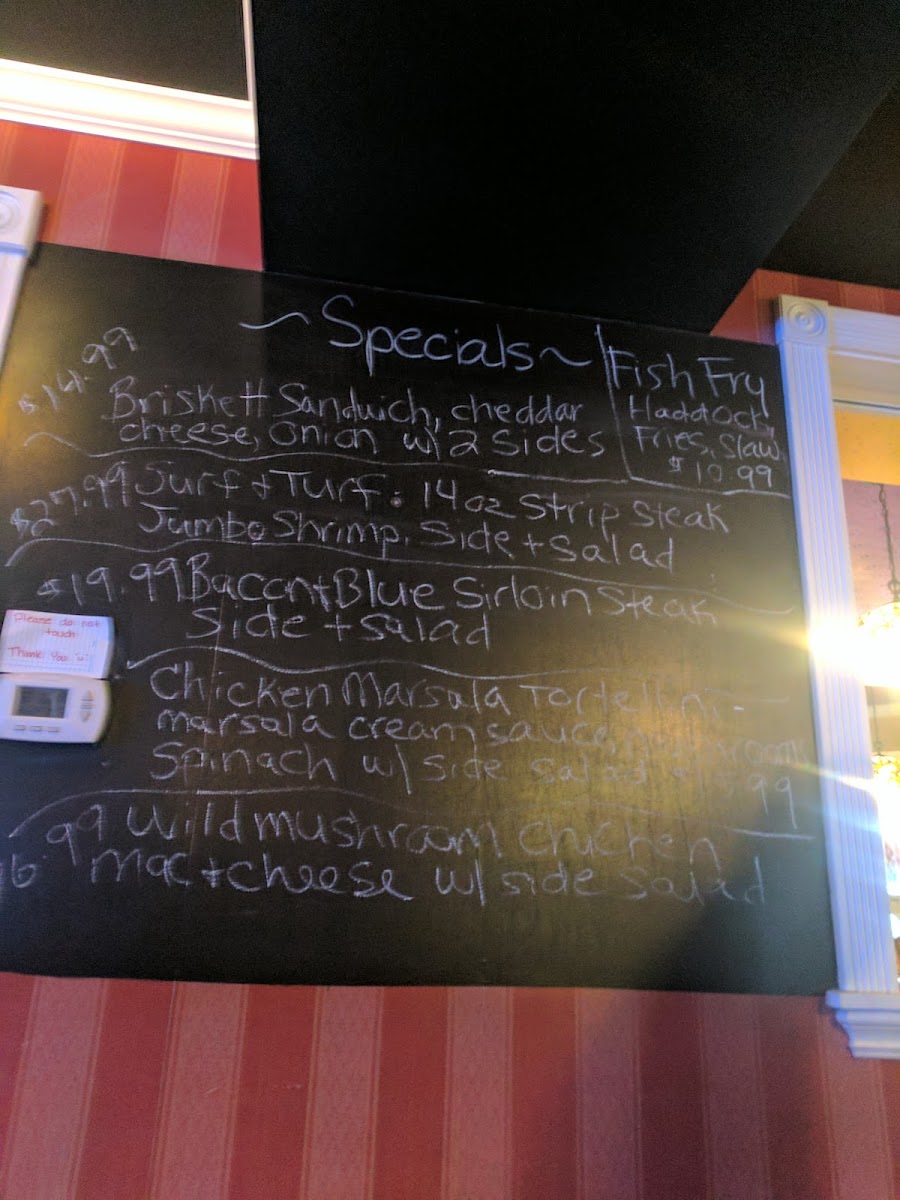 ~ Specials ~
$14.99
Briskett Sandwich, cheddar
cheese, onion w/ 2 Sides
Fish Fry
Haddock,
Fries, Slaw
$10.99
$27.99 Surf + Turf: 14oz Strip Steak
Jumbo Shrimp, Side + Salad
$19.99 Bacon + Blue Sirloin Steak
Side + Salad
Please do not
touch
Thank You
Chicken Marsala Tortellini -
marsala cream sauce, mushroom
Spinach w/ side salad
99
16.99 Wild mushroom chicken
mac + cheese w/ side salad